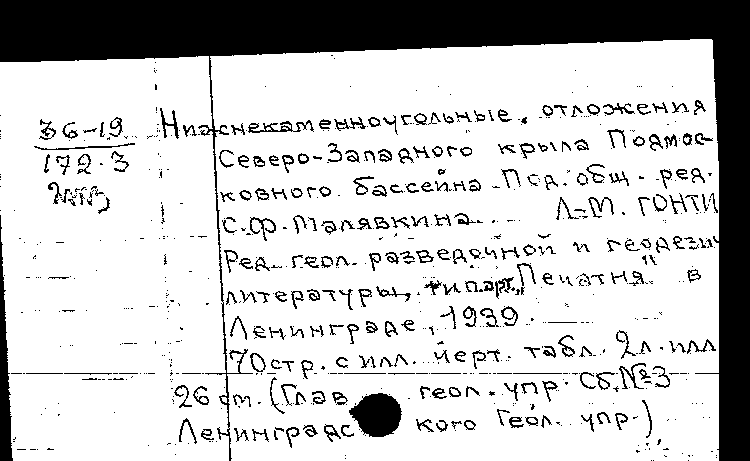 36-19
172.3
Нижнекаменноугольные отложения
Северо-Западного крыла Подмос-
ковного бассейна. Под. общ. ред.
С.Ф. Малявкина. Л-М. ГОНТИ
Ред. геол. разведочной и геодезич
литературы, тип. арт. "Печатня" в
Ленинграде, 1939.
70стр. с илл. черт. табл. 2л. илл
26 см. (Глав геол. упр. Сб. №3
Ленинградс кого Геол. упр.)